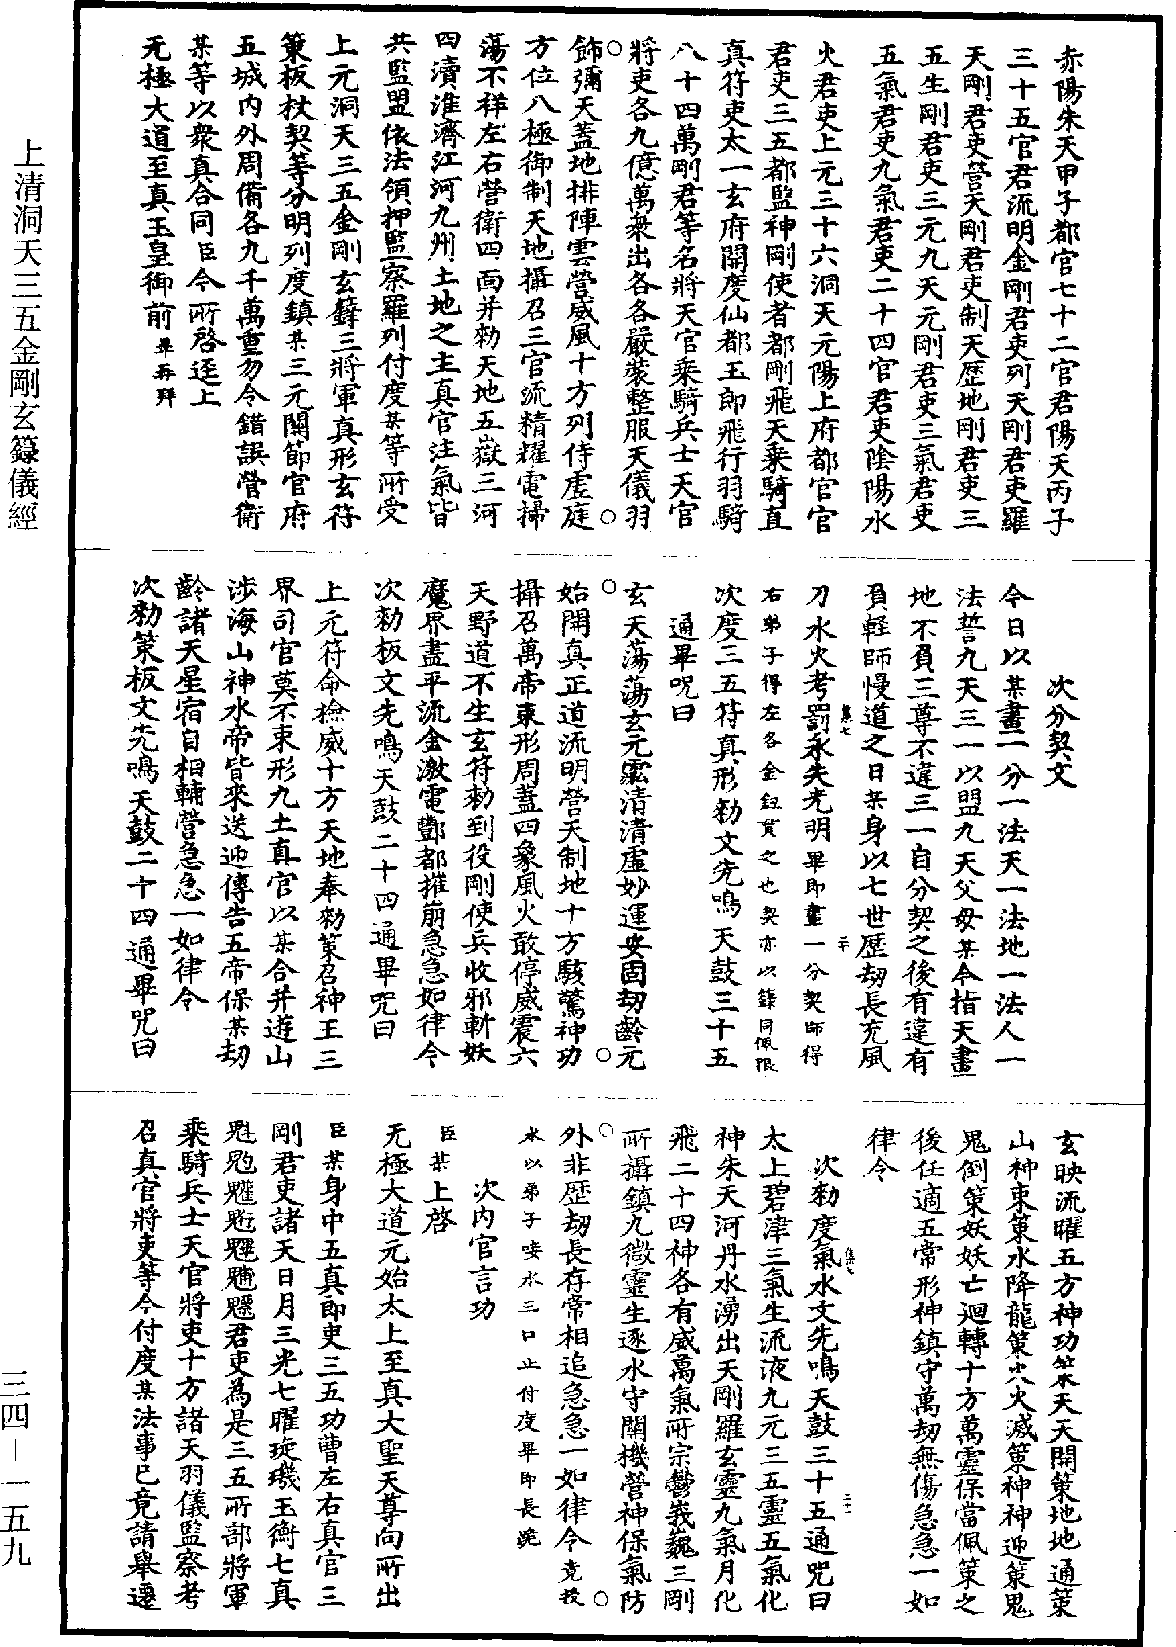 赤陽朱天甲子都官七十二官君陽天丙子
三十五官君流明金剛君吏列天剛君吏羅
天剛君吏營天剛君吏制天歷地剛君吏三
五生剛君吏三元九天元剛君吏三氣君吏
五氣君吏九氣君吏二十四官君吏陰陽水
火君吏上元三十六洞天元陽上府都官官
君吏三五都監神剛使者都剛飛天乘騎直
真符吏太一玄府開度仙都玉郎飛行羽騎
八十四萬剛君等名將天官乘騎兵士天官
將吏各九億萬衆出各各嚴裝整服天儀羽
飾彌天蓋地排陣雲營威風十方列侍虛庭
方位八極御制天地攝召三官流精耀電掃
蕩不祥左右營衛四面并勑天地五嶽三河
四瀆淮濟江河九州土地之主真官注氣皆
共監盟依法領押監察羅列付度某等所受
上元洞天三五金剛玄籙三將軍真形玄符
策板杖契等分明列度鎮某三元關節官府
五城内外周備各九千萬重勿令錯誤營衛
某等以衆真合同臣今所啓逕上
无極大道至真玉皇御前畢再拜
次分契文
今日以某畫一分一法天一法地一法人一
法誓九天三一以盟九天父母某今指天畫
地不負三尊不違三一自分契之後有違有
負軽師慢道之日某身以七世歷劫長充風
刀水火考罰永失光明畢即畫一分契師得
右弟子得左各金鈕貫之也契亦以籙同佩限
次度三五符真形勑文先鳴天鼓三十五
通畢呪曰
玄天蕩蕩玄元靈清清虛妙運安固劫齡元
始開真正道流明營天制地十方駭驚神功
攝召萬帝束形周蓋四象風火敢停威震六
天野道不生玄符勑到役剛使兵收邪斬妖
魔界盡平流金激電酆都摧崩急急如律令
次勑板文先鳴天鼓二十四通畢呪曰
上元符命檢威十方天地奉勑策召神王三
界司官莫不束形九土真官以某合并遊山
涉海山神水帝皆來送迎傳告五帝保某劫
齡諸天星宿自相輔營急急一如律令
次勑策板文先鳴天鼓二十四通畢呪曰
玄映流曜五方神功策天天開策地地通策
山神束策水降龍策火火滅策神神迎策鬼
鬼倒策妖妖亡迴轉十方萬靈保當佩策之
後任適五常形神鎮守萬劫無傷急急一如
律令
次勑度氣水文先鳴天鼓三十五通呪曰
太上碧津三氣生流液九元三五靈五氣化
神朱天河丹水湧出天剛羅玄靈九氣月化
飛二十四神各有威萬氣所宗鬱峩巍三剛
所攝鎮九微靈生逐水守關機營神保氣防
外非歷劫長存常相追急急一如律令竟投
水以弟子咹水三口止付度畢即長跪
次内官言功
臣某上啓
无極大道元始太上至真大聖天尊向所出
臣某身中五真郎吏三五功曹左右真官三
剛君吏諸天日月三光七曜琁璣玉衡七真
君吏為是三五所部將軍
乘騎兵士天官將吏十方諸天羽儀監察考
召真官將吏等今付度某法事已竟請舉遷
上清洞天三五金剛玄籙儀經
三四－一五九